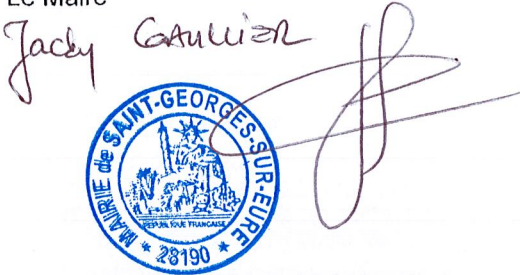 Le Maire
Jacky GAULLIER
MAIRIE de SAINT-GEORGES-SUR-EURE
REPUBLIQUE FRANCAISE
* 28190 *